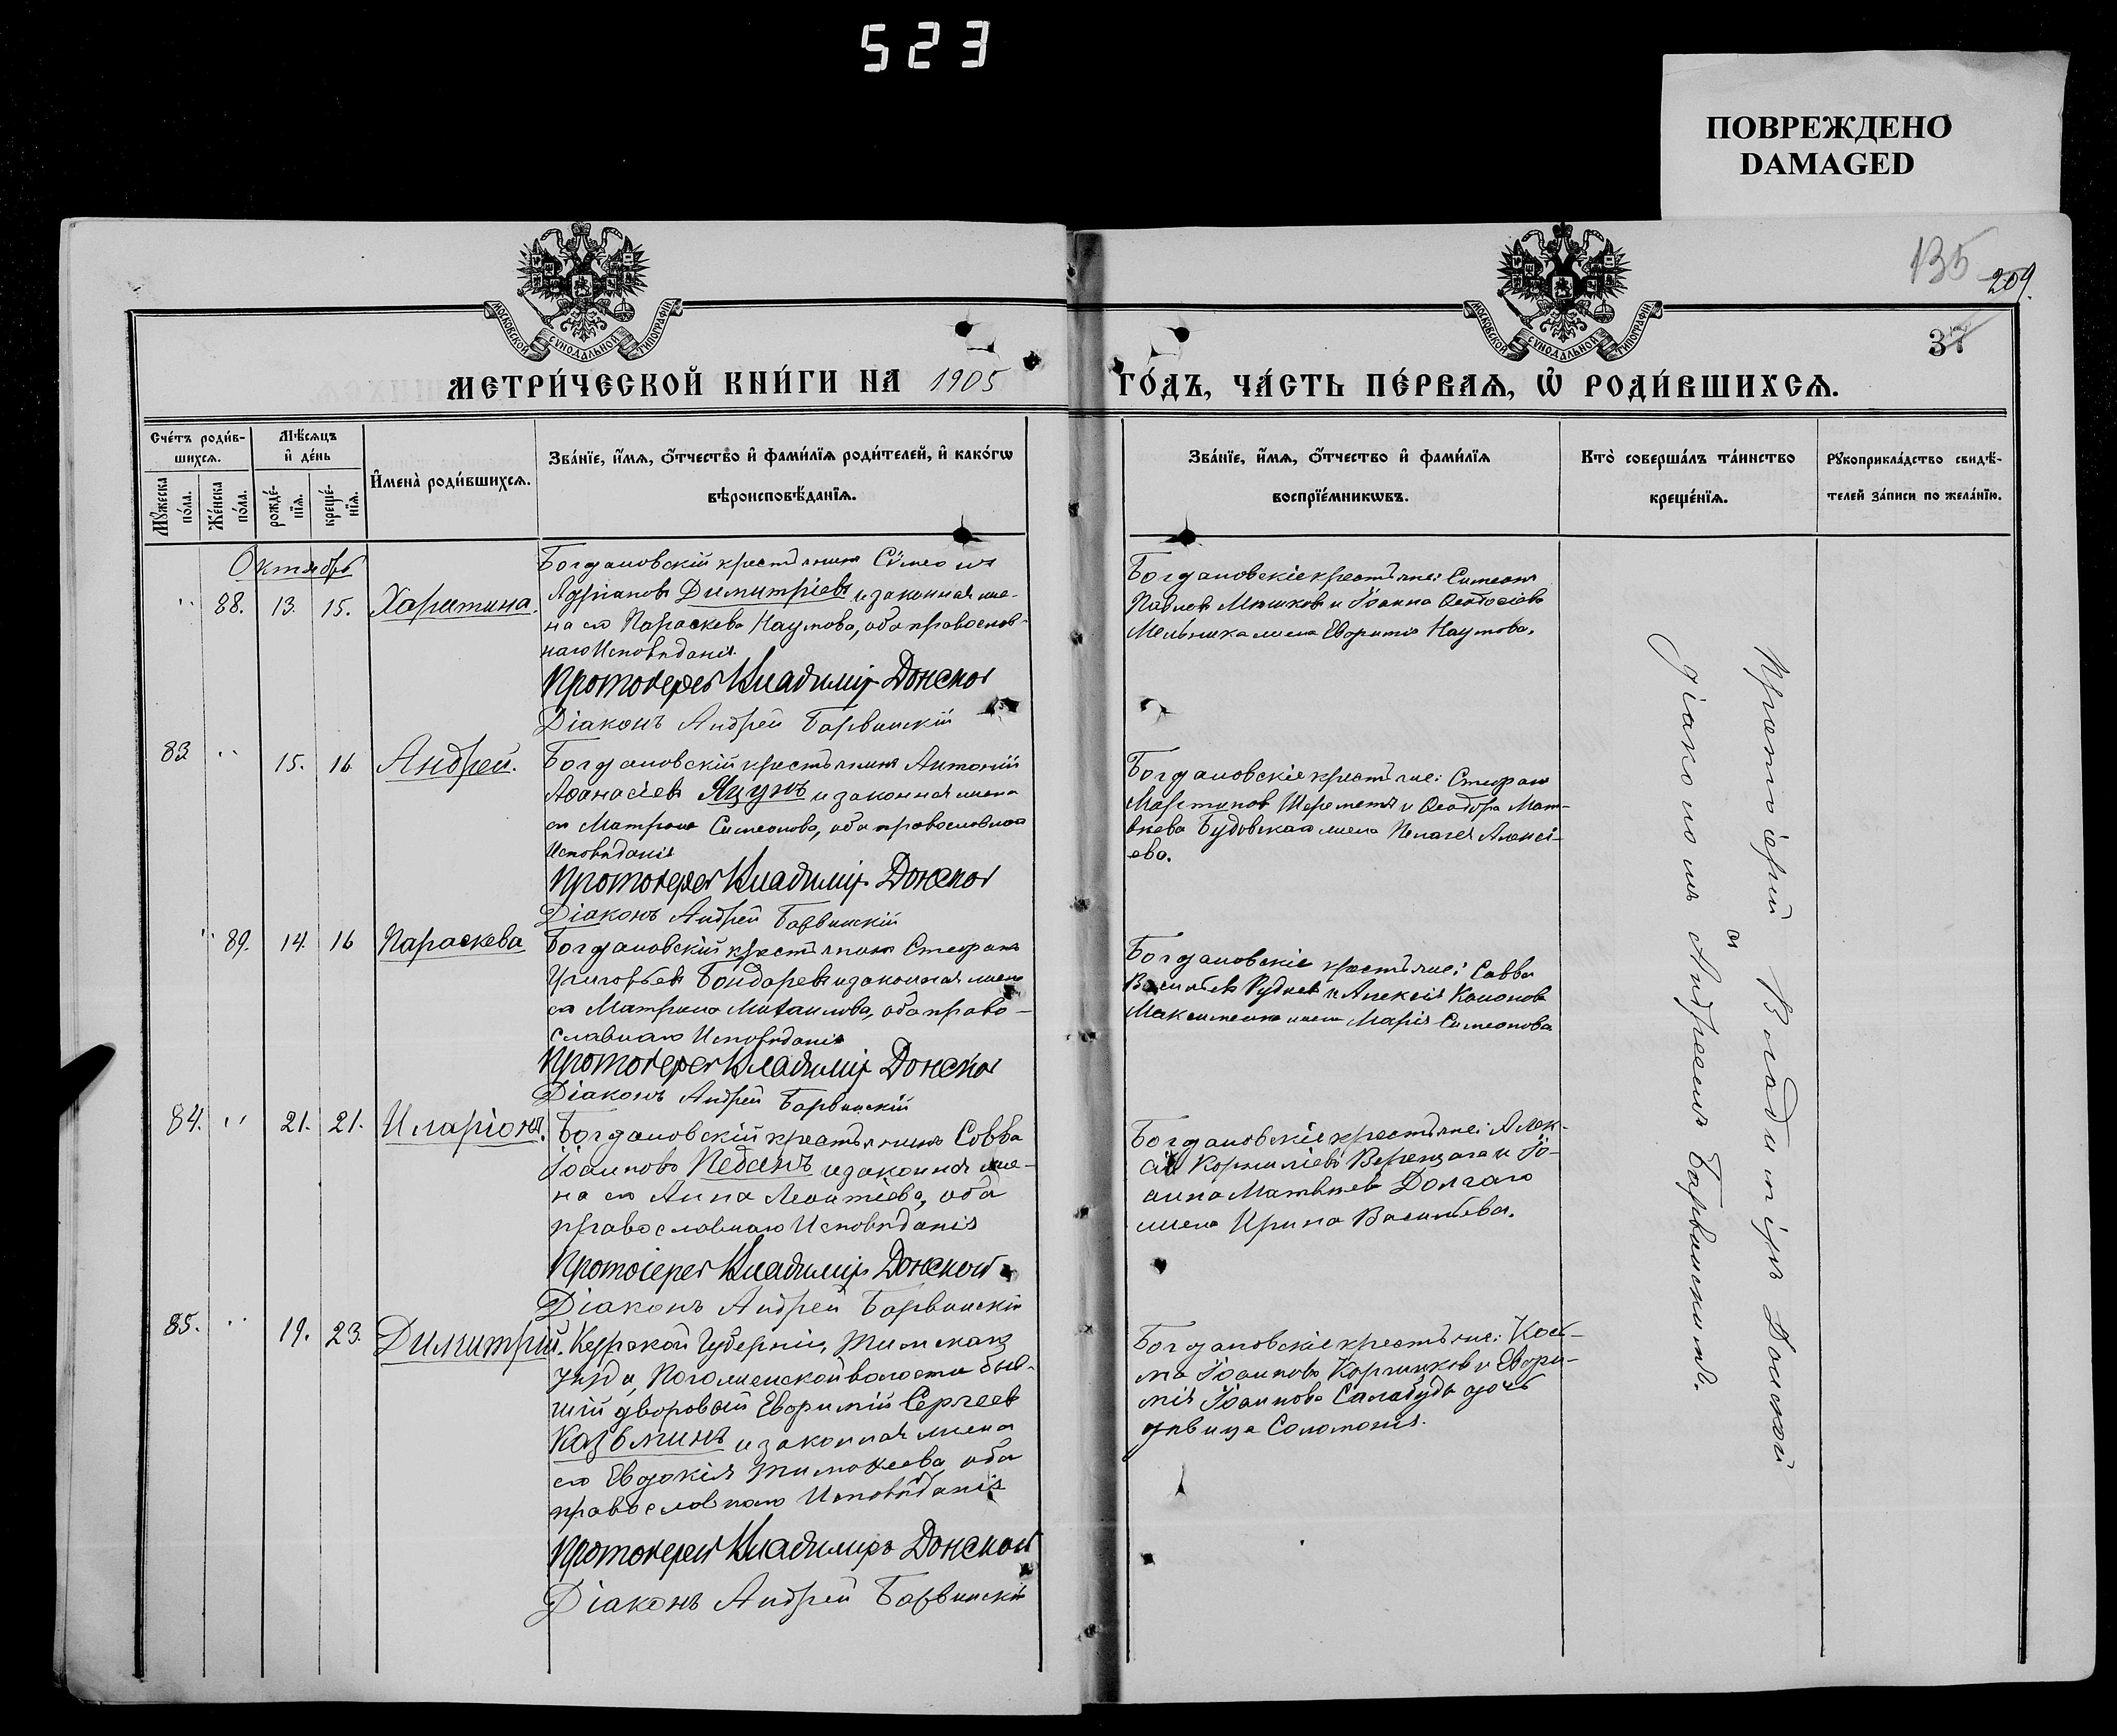 523
ПОВРЕЖДЕНО
DAMAGED
135
209.
37
МОСКОВСКОЙ СѴНОДАЛЬНОЙ ТИПОГРАФІИ
МОСКОВСКОЙ СѴНОДАЛЬНОЙ ТИПОГРАФІИ
МЕТРИ́ЧЕСКОЙ КНИ́ГИ НА 1905 ГО́ДЪ, ЧА́СТЬ ПЕ́РВАѦ, Ѽ РОДИ́ВШИХСѦ.
Сче́тъ роди́в-
шихсѧ.
Мꙋ́жеска
по́ла.
Же́нска
по́ла.
Мѣ́сѧцъ
и҆ де́нь
рожде́-
нїѧ.
креще́-
нїѧ.
И҆мена̀ роди́вшихсѧ.
Зва́нїе, и҆́мѧ, ѻ҆́тчество и҆ фами́лїѧ роди́телей, и҆ како́гѡ
вѣроисповѣ́данїѧ.
Зва́нїе, и҆́мѧ, ѻ҆́тчество и҆ фами́лїѧ
воспрїе́мникѡвъ.
Кто̀ соверша́лъ та́инство
креще́нїѧ.
Рꙋкоприкла́дство свидѣ́-
телей за́писи по жела́нїю.
Октябрь
" 88. 13. 15. Харитина.
Богдановскій крестьянинъ Сѵмеонъ
Адріановъ Димитріевъ и законная же-
на его Параскева Наумова, оба православ-
наго Исповѣданія.
Протоіерей Владимір Донской
Діаконъ Андрей Барвинскій
Богдановскіе крестьяне: Симеонъ
Павлов Мошков и Іоанна Ѳеодосіева
Мельника жена Евфимія Наумова.
83 " 15. 16 Андрей.
Богдановскій крестьянинъ Антоній
Аѳанасіев Яцунъ и законная жена
его Матрона Симеонова, оба православнаго
Исповѣданія
Протоіерей Владимір Донской
Діаконъ Андрей Барвинскій
Богдановскіе крестьяне: Стефан
Мартинов Шереметъ и Ѳеодора Мат-
вѣева Будовская жена Пелагея Алексі-
ева.
" 89. 14. 16 Параскева
Богдановскій крестьянинъ Стефанъ
Григорьев Бондарев и законная жена
его Матрона Михаилова, оба право-
славнаго Исповѣданія
Протоіерей Владимір Донской
Діаконъ Андрей Барвинскій
Богдановскіе крестьяне: Савва
Васильев Руднев и Алексія Кононова
Максименко жена Марія Симеонова
84. " 21. 21. Иларіонъ.
Богдановскій крестьянинъ Савва
Іоаннов Педанъ и законная же-
на его Анна Леонтіева, оба
православнаго Исповѣданія
Протоіерей Владимір Донской
Діаконъ Андрей Барвинскій
Богдановскіе крестьяне: Алек-
сій Корниліевъ Верещага и Іо-
анна Матвѣева Долгаго
жена Ирина Васильева.
85. " 19. 23. Димитрій.
Курской Губерніи, Тимскаго
уѣзда, волости быв-
шій дворовый Евфимій Сергеев
Казьминъ и законная жена
его Евдокія Тимоѳеева, оба
православнаго Исповѣданія
Протоіерей Владиміръ Донской
Діаконъ Андрей Барвинскій
Богдановскіе крестьяне: Кось-
ма Іоаннов Коршиков и Евфи-
мія Іоаннова дочь
дѣвица Соломонія.
Протоіерей Владиміръ Донской
съ
Діакономъ Андреемъ Барвинскимъ.